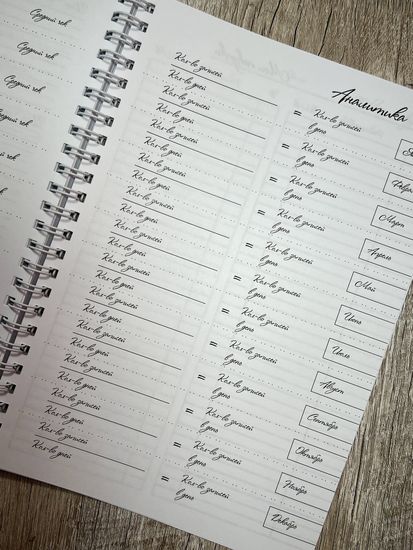 Средний чек
Средний чек
Средний чек
Средний чек
Аналитика
Кол-во записей
Кол-во дней
= Кол-во записей
в день
Ян
Кол-во записей
Кол-во дней
= Кол-во записей
в день
Февр
Кол-во записей
Кол-во дней
= Кол-во записей
в день
Март
Кол-во записей
Кол-во дней
= Кол-во записей
в день
Апрель
Кол-во записей
Кол-во дней
= Кол-во записей
в день
Май
Кол-во записей
Кол-во дней
= Кол-во записей
в день
Июнь
Кол-во записей
Кол-во дней
= Кол-во записей
в день
Июль
Кол-во записей
Кол-во дней
= Кол-во записей
в день
Август
Кол-во записей
Кол-во дней
= Кол-во записей
в день
Сентябрь
Кол-во записей
Кол-во дней
= Кол-во записей
в день
Октябрь
Кол-во записей
Кол-во дней
= Кол-во записей
в день
Ноябрь
Кол-во записей
Кол-во дней
= Кол-во записей
в день
Декабрь